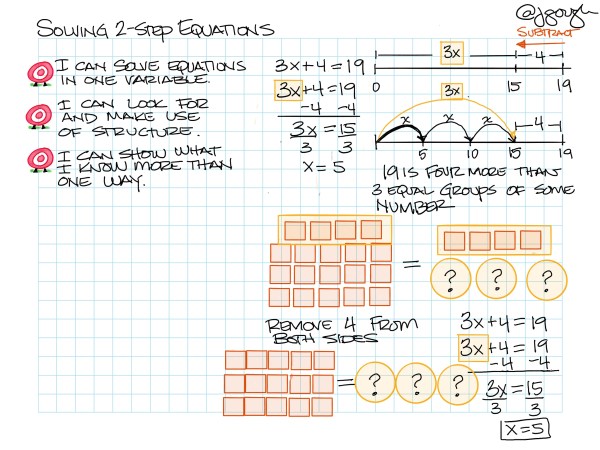 @jgough
SOLVING 2-STEP EQUATIONS
I CAN SOLVE EQUATIONS
IN ONE VARIABLE.
I CAN LOOK FOR
AND MAKE USE
OF STRUCTURE.
I CAN SHOW WHAT
I KNOW MORE THAN
ONE WAY.
3x+4=19
3x+4=19
-4 -4
3x = 15
3 3
x=5
SUBTRACT
3x 4
0 15 19
3x
x x x 4
5 10 15 19
19 IS FOUR MORE THAN
3 EQUAL GROUPS OF SOME
NUMBER
=
? ? ?
REMOVE 4 FROM
BOTH SIDES
= ? ? ?
3x+4=19
3x+4=19
-4 -4
3x = 15
3 3
x=5